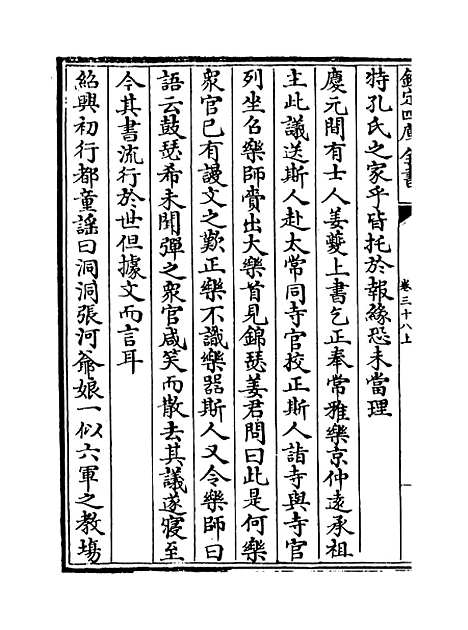 欽定四庫全書
卷三十八上
特孔氏之家乎皆托於報緣恐未當理
慶元間有士人姜夔上書乞正奉常雅樂京仲遠承祖
主此議送斯人赴太常同寺官校正斯人詣寺與寺官
列坐召樂師賫出大樂首見錦瑟姜君問曰此是何樂
衆官已有謾文之歎正樂不識樂器斯人又令樂師曰
語云鼓瑟希未聞彈之衆官咸笑而散去其議遂寢至
今其書流行於世但據文而言耳
紹興初行都童謡曰洞洞張河爺娘一似六軍之教塲